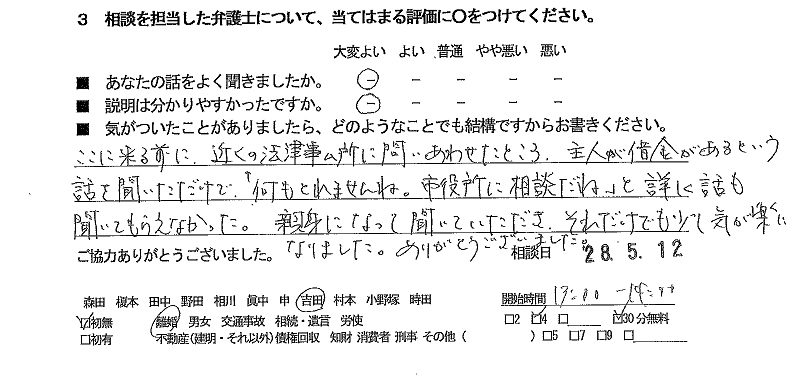 3 相談を担当した弁護士について、当てはまる評価に○をつけてください。
大変よい よい 普通 やや悪い 悪い
■ あなたの話をよく聞きましたか。 － － － － －
■ 説明は分かりやすかったですか。 － － － － －
■ 気がついたことがありましたら、どのようなことでも結構ですからお書きください。
ここに来る前に、近くの法律事ム所に問いあわせたところ、主人が借金があるという
話を聞いただけで、「何もとれませんね。市役所に相談だね」と詳しく話も
聞いてもらえなかった。親身になって聞いていただき、それだけでも少し気が楽に
なりました。ありがとうございました。
ご協力ありがとうございました。 相談日 28. 5. 12
森田 榎本 田中 野田 相川 眞中 申 吉田 村本 小野塚 時田 開始時間 13:00 -14:00
☑初無 離婚 男女 交通事故 相続・遺言 労使 □2 ☑4 □ ☑30分無料
□初有 不動産(建明・それ以外) 債権回収 知財 消費者 刑事 その他 ( ) □5 □7 □9 □